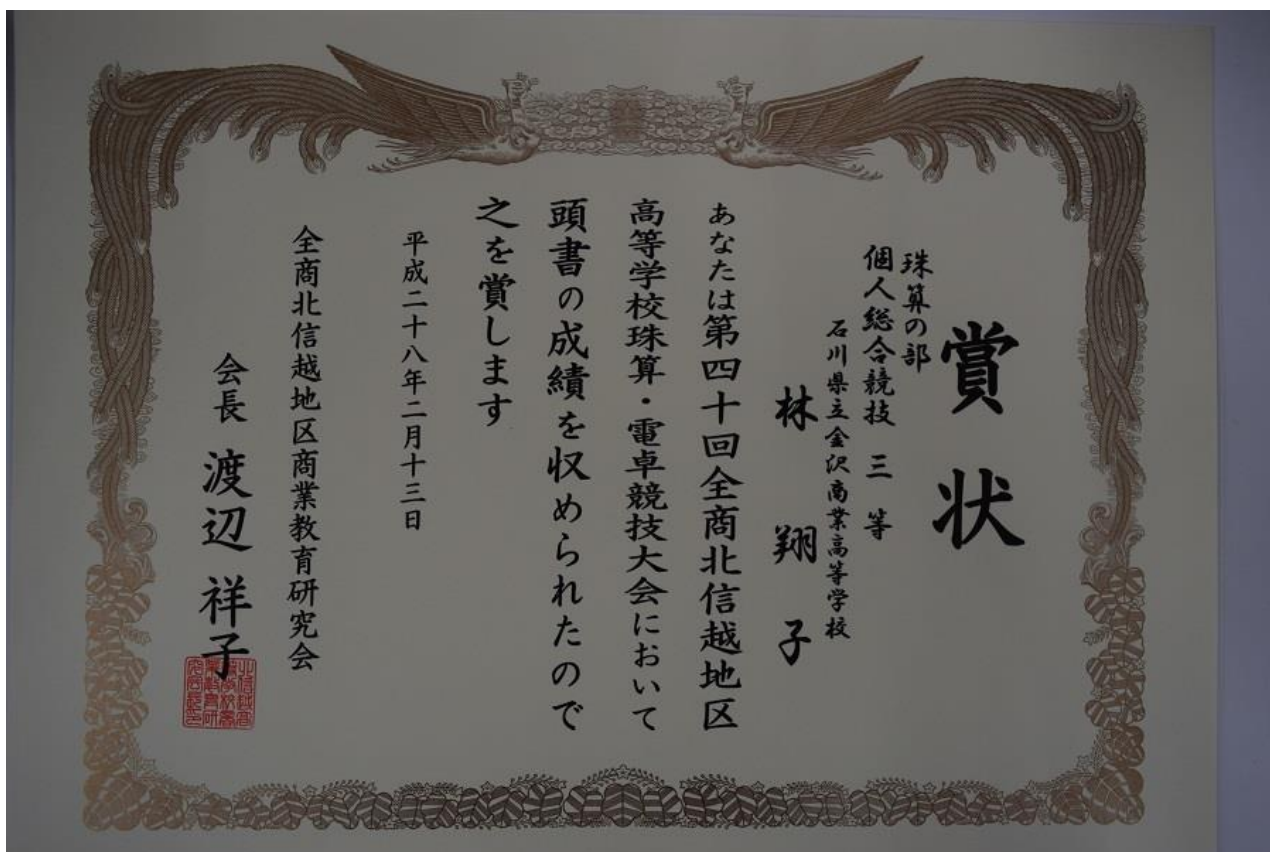 賞状
珠算の部
個人総合競技 三等
石川県立金沢商業高等学校
林 翔子
あなたは第四十回全商北信越地区
高等学校珠算・電卓競技大会において
頭書の成績を収められたので
之を賞します
平成二十八年二月十三日
全商北信越地区商業教育研究会
会長 渡辺 祥子